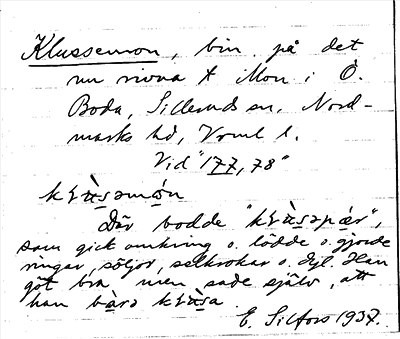 Klussemon, bin. på det
nu rivna t Mon i Ö.
Boda, Sillerud sn, Nord-
marks hd, Vrml l.
Vid "177,78"
Där bodde
som gick omkring o. lödde o. gjorde
ringar, söljor, selkrokar o. dyl. Han
göt bra men sade själv, att
han
E. Silfors 1937.